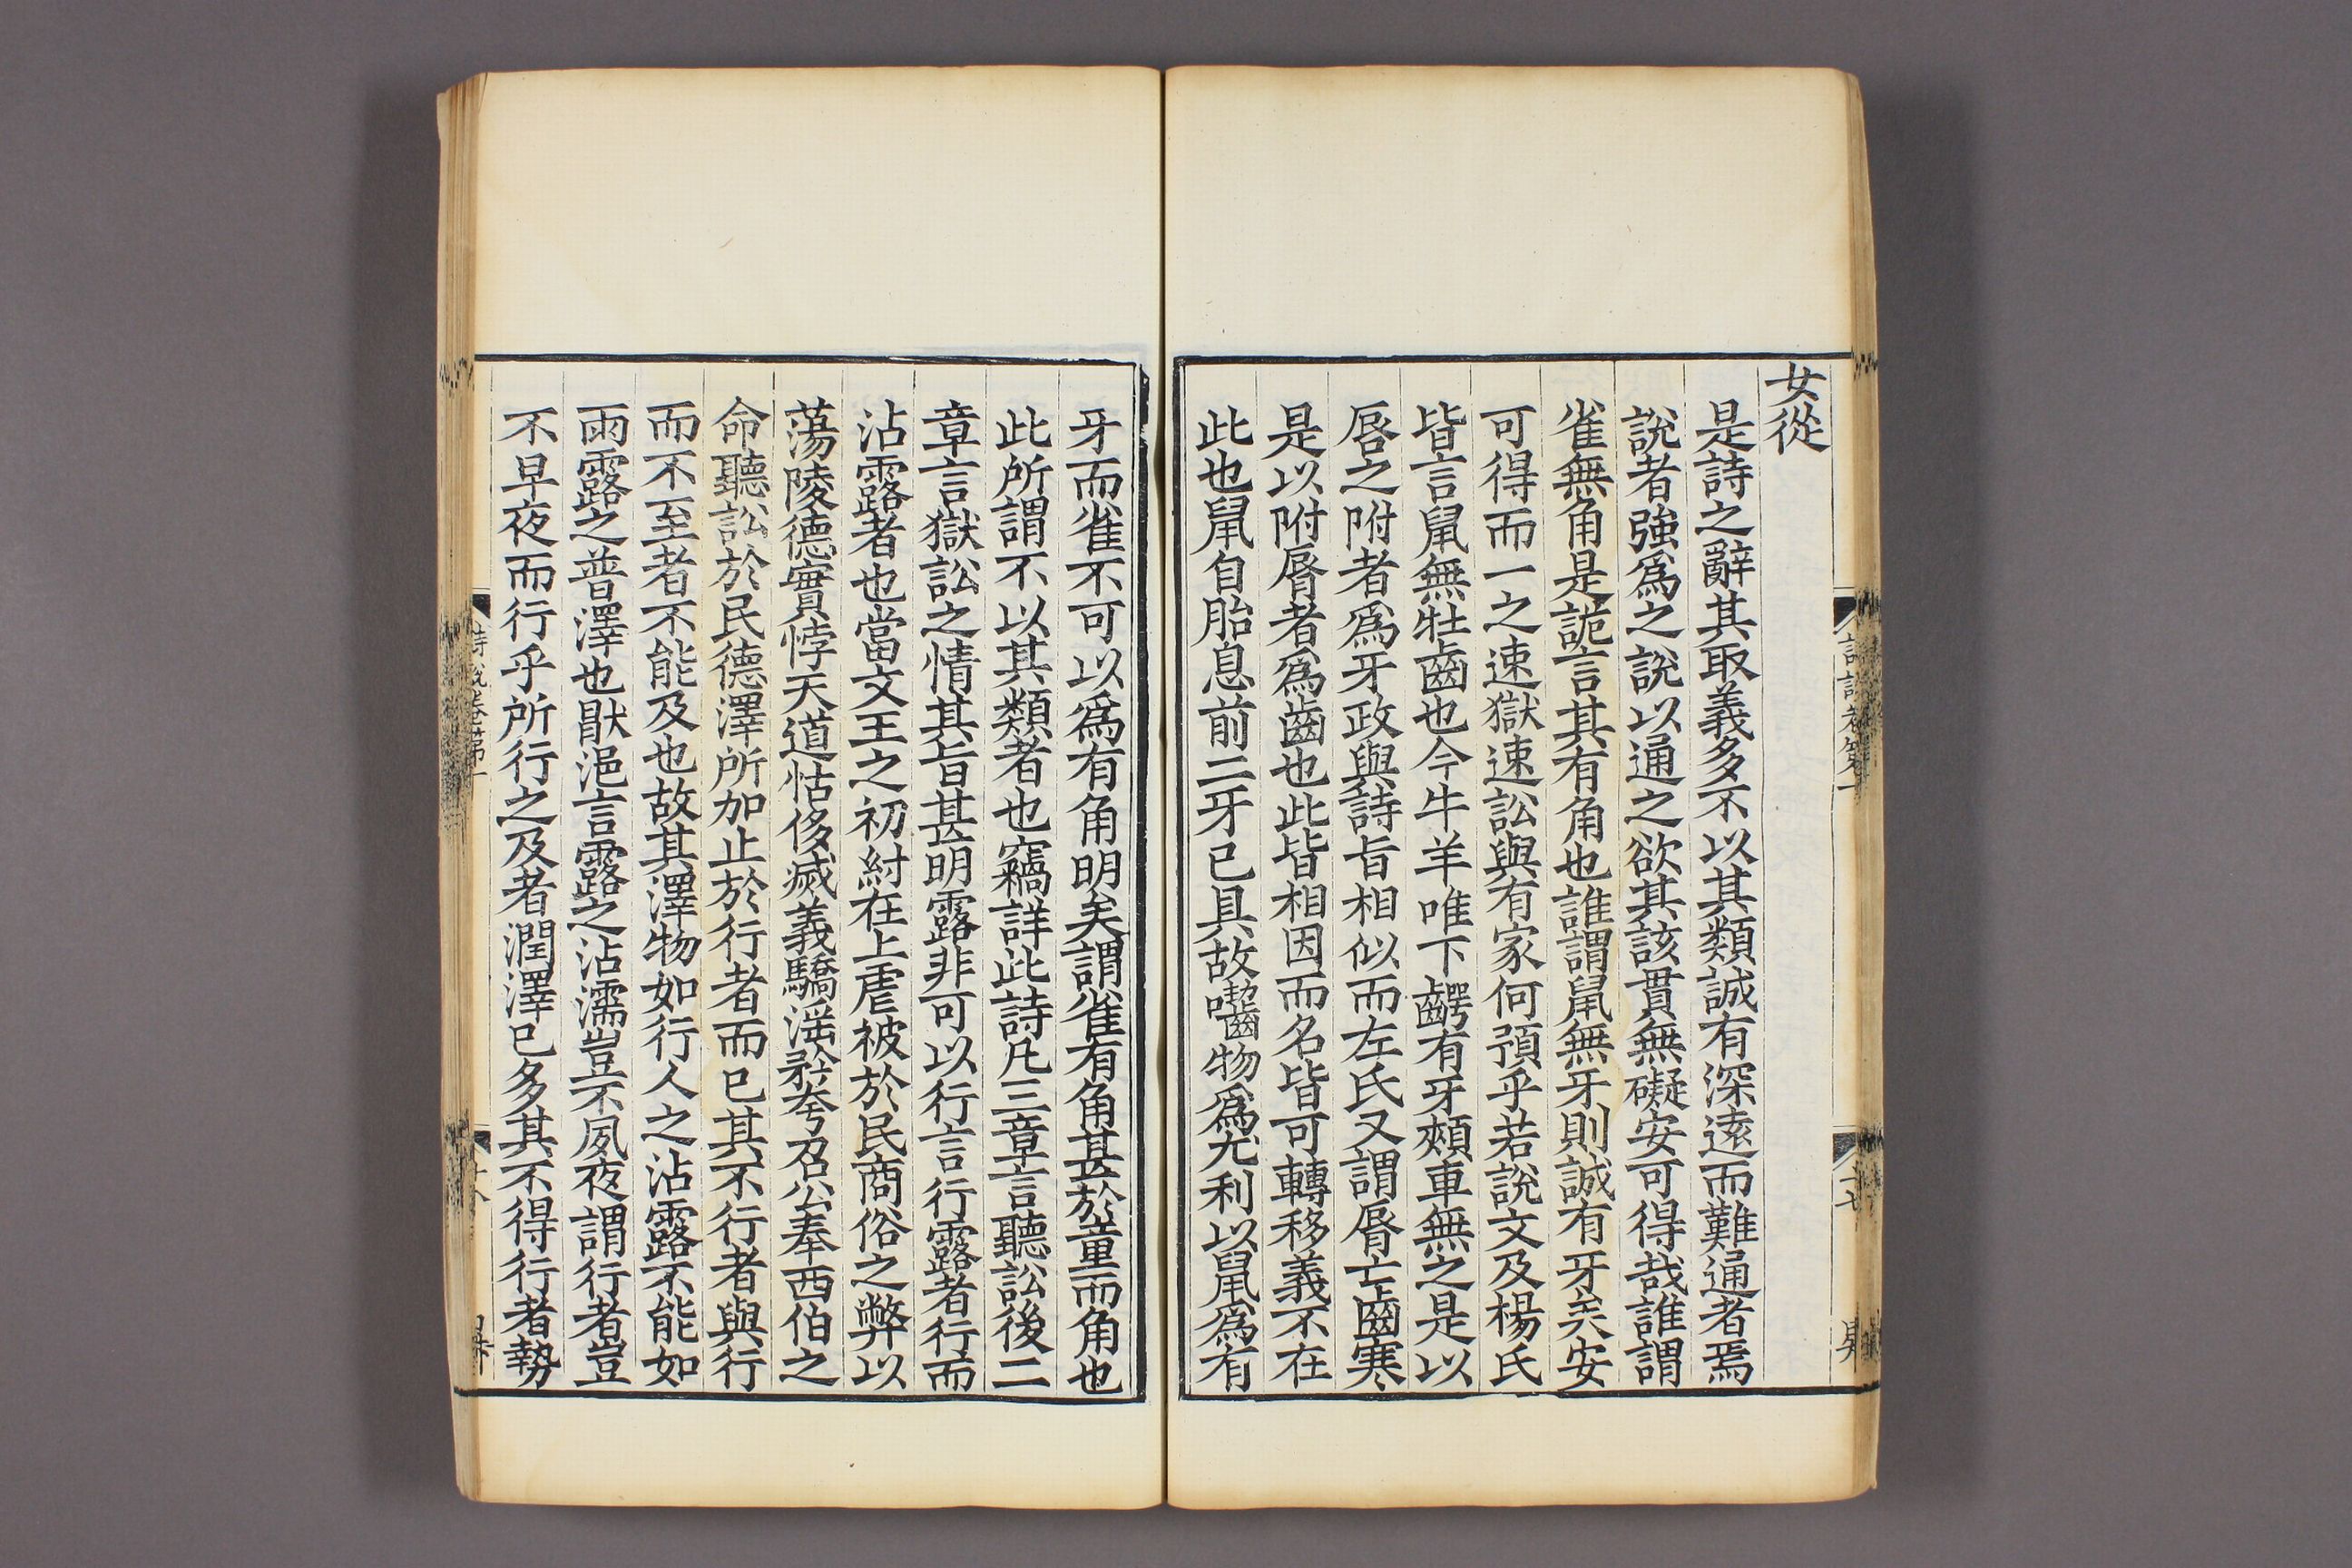 女從
是詩之辭其取義多不以其類誠有深遠而難通者焉
說者強爲之說以通之欲其該貫無礙安可得哉誰謂
雀無角是詭言其有角也誰謂鼠無牙則誠有牙矣安
可得而一之速獄速訟與有家何預乎若說文及楊氏
皆言鼠無牡齒也今牛羊唯下齶有牙頰車無之是以
唇之附者爲牙政與詩旨相似而左氏又謂脣亡齒寒
是以附脣者爲齒也此皆相因而名皆可轉移義不在
此也鼠自胎息前二牙已具故囓物爲尤利以鼠爲有
牙而雀不可以爲有角明矣謂雀有角甚於童而角也
此所謂不以其類者也竊詳此詩凡三章言聽訟後二
章言獄訟之情其旨甚明露非可以行言行露者行而
沾露者也當文王之初紂在上虐被於民商俗之弊以
蕩陵德實悖天道怙侈滅義驕淫矜夸召公奉西伯之
命聽訟於民德澤所加止於行者而已其不行者與行
而不至者不能及也故其澤物如行人之沾露不能如
雨露之普澤也猒浥言露之沾濡豈不夙夜謂行者豈
不早夜而行乎所行之及者潤澤已多其不得行者勢
詩說卷第一
十八
詩說卷第一
十七